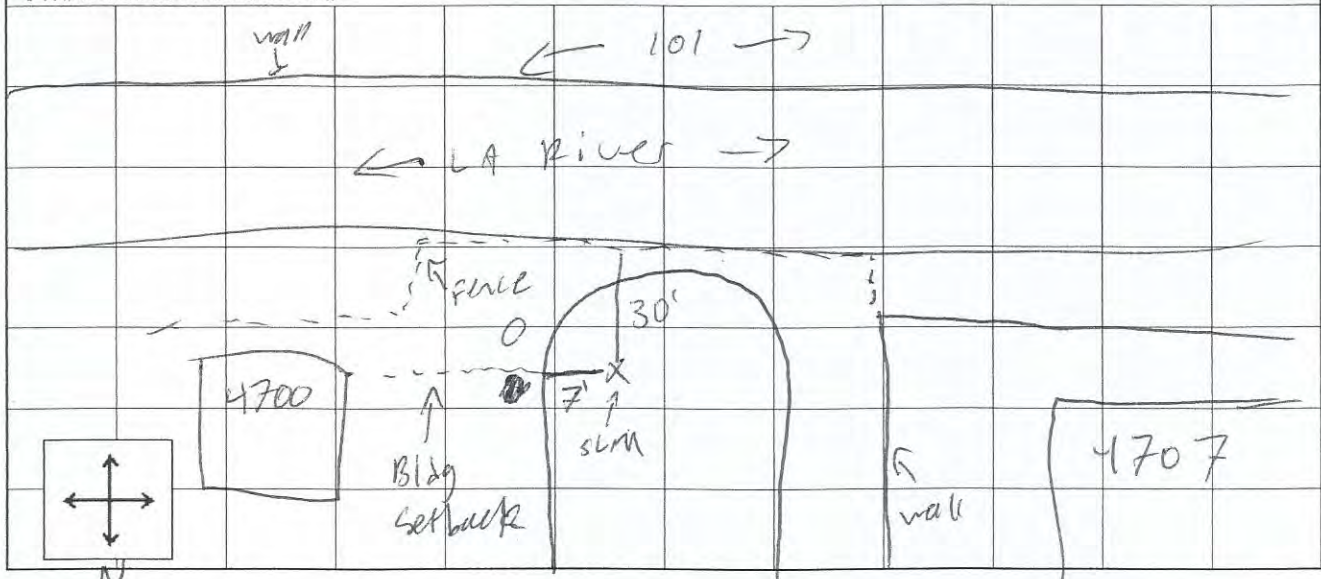 wall
← 101 →
← LA River →
Fence
30'
4700
7'
SLM
Bldg
Setback
wall
4707
N